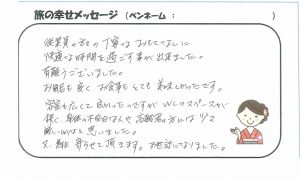 旅の幸せメッセージ (ペンネーム : )
従業員の方の丁寧なおもてなしに
快適な時間を過ごす事が出来ました。
有難うございました。
お部屋も良く お食事もとても美味しかったです。
浴室も広くて良かったですが WCのスペースが
狭く、身体の不自由な人や高齢者の方には
厳しいかなと思いました。
又、是非 寄らせて頂ます。お世話になりました。